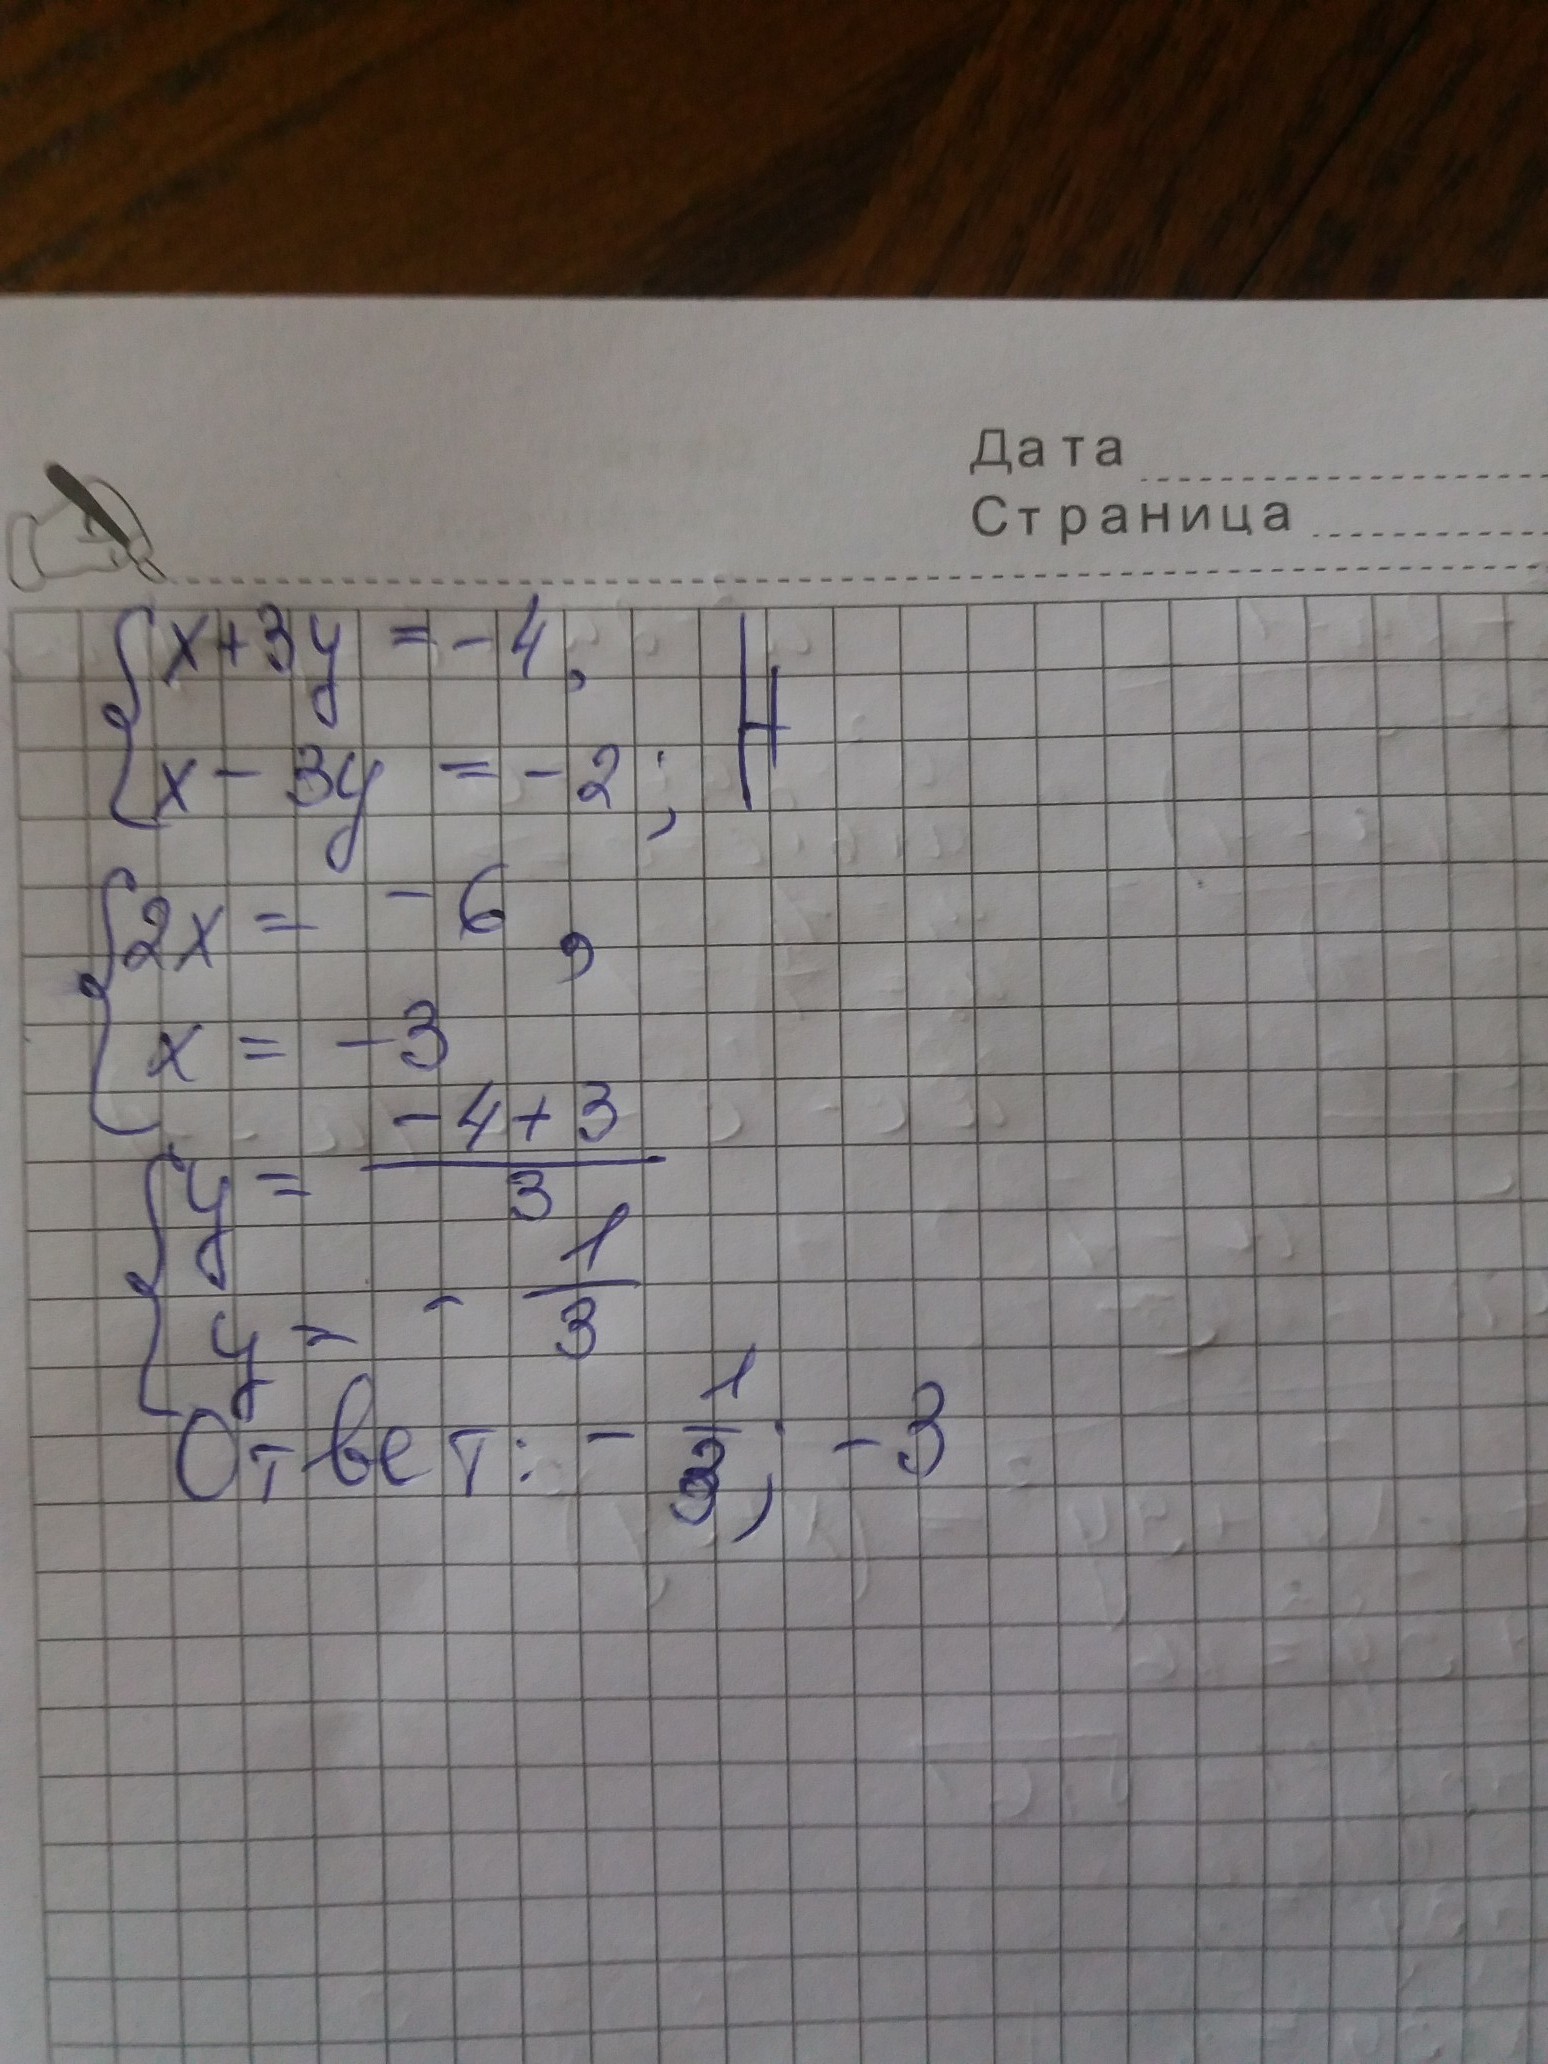 Дата
Страница
{x+3y = -4,
{x - 3y = -2; |+
{2x = -6,
{x = -3
{y = \frac{-4+3}{3}
{y = -\frac{1}{3}
Ответ: -\frac{1}{3}; -3